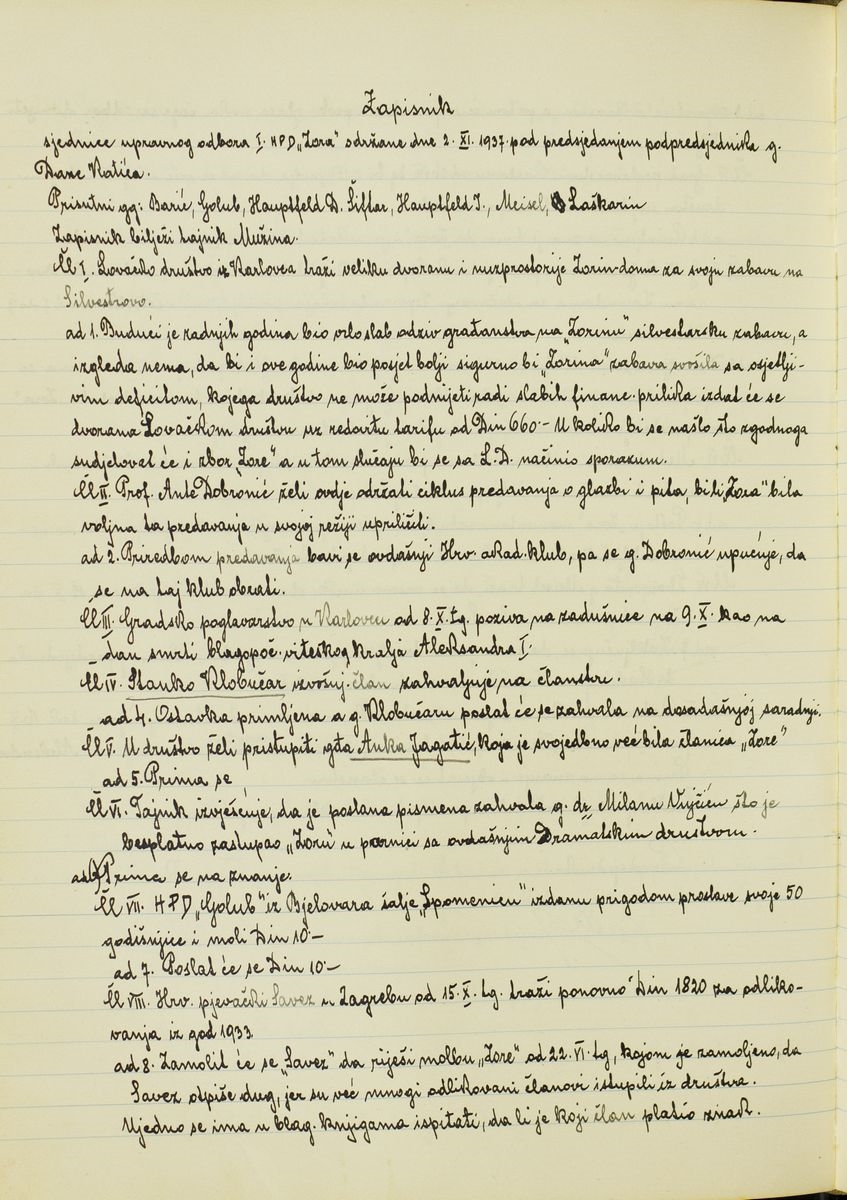 Zapisnik
sjednice upravnog odbora I. HPD „Zora" održane dne 2. XI. 1937. pod predsjedanjem podpredsjednika g.
Dane Katića.
Prisutni gg: Barić, Golub, Hauptfeld D. Šiftar, Hauptfeld I., Meisel, Laškarin
Zapisnik bilježi tajnik Mužina.
Čl I. Lovačko društvo iz Karlovca traži veliku dvoranu i nuzprostorije Zorin-doma za svoju zabavu na
Silvestrovo.
ad 1. Budući je zadnjih godina bio vrlo slab odziv građanstva na „Zorinu" silvestarsku zabavu, a
izgleda nema, da bi i ove godine bio posjet bolji sigurno bi „Zorina" zabava svršila sa osjetlji-
vim deficitom, kojega društvo ne može podnijeti radi slabih financ. prilika izdat će se
dvorana Lovačkom društvu uz redovitu tarifu od Din 660.- U koliko bi se našlo što zgodnoga
sudjelovat će i zbor „Zore" a u tom slučaju bi se sa L.D. načinio sporazum.
Čl II. Prof. Ante Dobronić želi ovdje održati ciklus predavanja o glazbi i pita, bi li „Zora" bila
voljna ta predavanja u svojoj režiji upriličiti.
ad 2. Priredbom predavanja bavi se ovdašnji Hrv. akad. klub, pa se g. Dobronić upućuje, da
se na taj klub obrati.
Čl III. Gradsko poglavarstvo u Karlovcu od 8. X. tg. poziva na zadušnice na 9. X. kao na
dan smrti blagopoč. viteškog kralja Aleksandra I.
Čl IV. Stanko Klobučar izvošnj. član zahvaljuje na članstvu.
ad 4. Ostavka primljena a g. Klobučaru poslat će se zahvala na dosadašnjoj saradnji.
Čl V. U društvo želi pristupiti gđa Anka Jagatić, koja je svojedobno već bila članica „Zore"
ad 5. Prima se
Čl VI. Tajnik izvješćuje, da je poslana pismena zahvala g. dr. Milanu Vujčiću što je
besplatno zastupao „Zoru" u parnici sa ovdašnjim Dramatskim društvom.
ad 6 Prima se na znanje.
Čl VII. HPD „Golub" iz Bjelovara šalje „Spomenicu" izdanu prigodom proslave svoje 50
godišnjice i moli Din 10.-
ad 7. Poslat će se Din 10.-
Čl VIII. Hrv. pjevački Savez u Zagrebu od 15. X. tg. traži ponovno Din 1820 za odliko-
vanja iz god 1933.
ad 8. Zamolit će se „Savez" da riješi molbu „Zore" od 22. VI. tg, kojom je zamoljeno, da
Savez otpiše dug, jer su već mnogi odlikovani članovi istupili iz društva.
Ujedno se ima u blag. knjigama ispitati, da li je koji član platio znak.